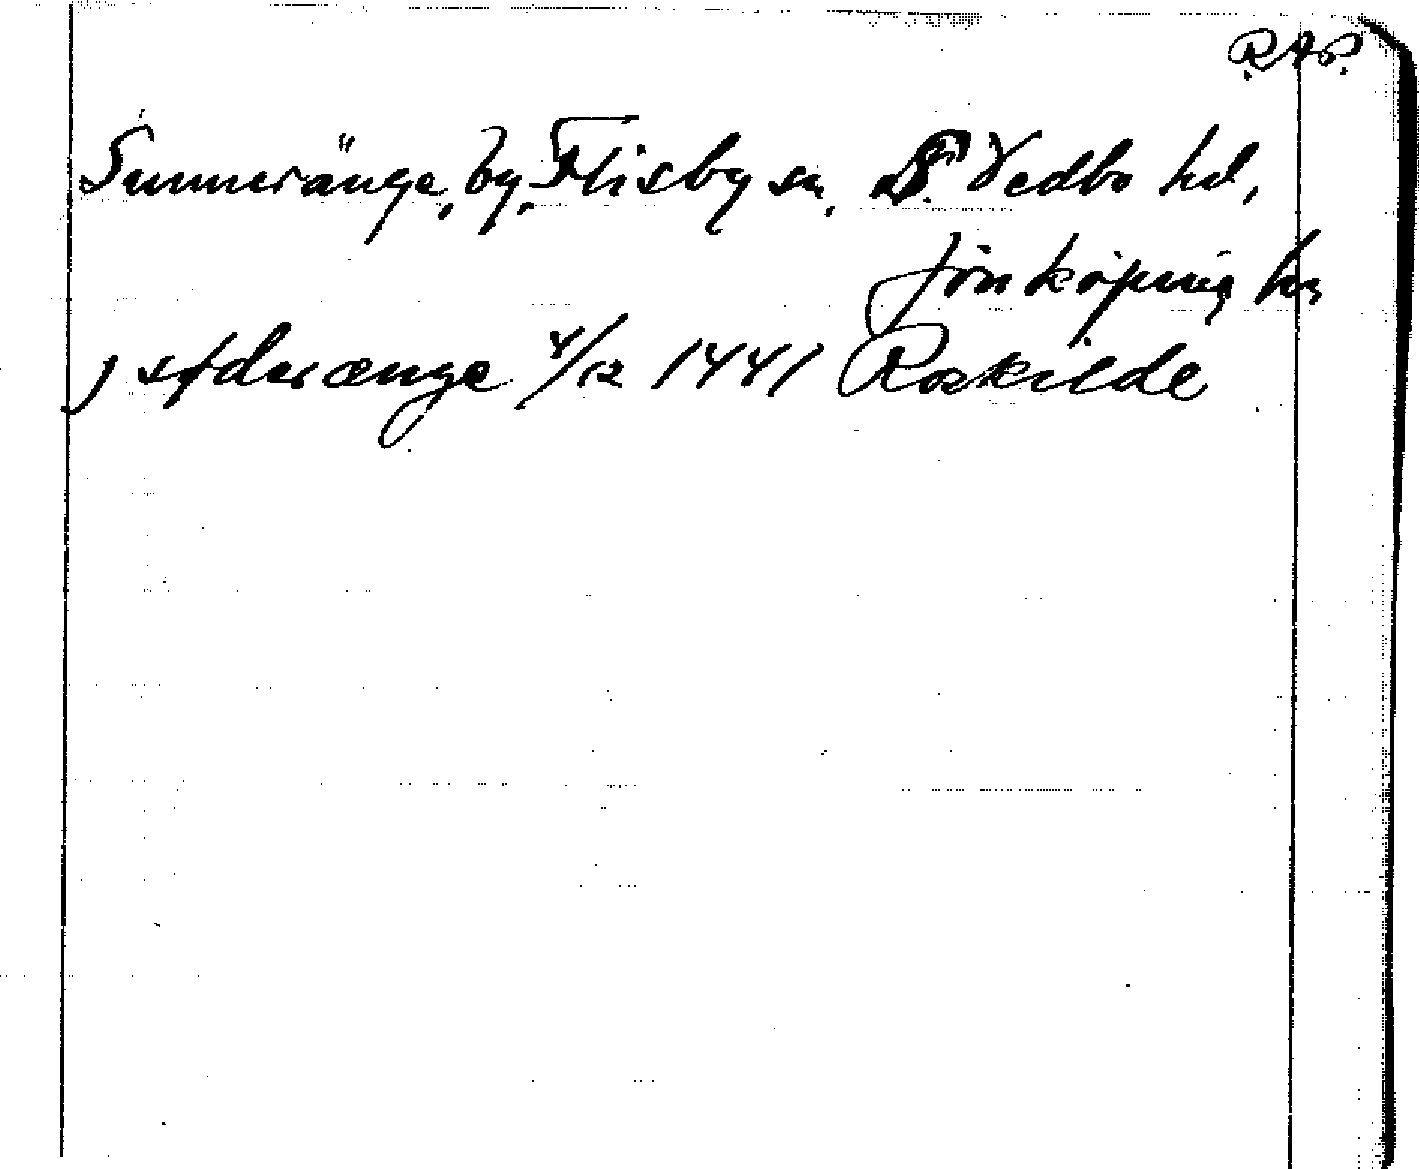 R.A.P.
Sunneränge, by, Flisby sn, S. Vedbo hd,
Jönköping ln
j søderænge 4/12 1441 Roskilde